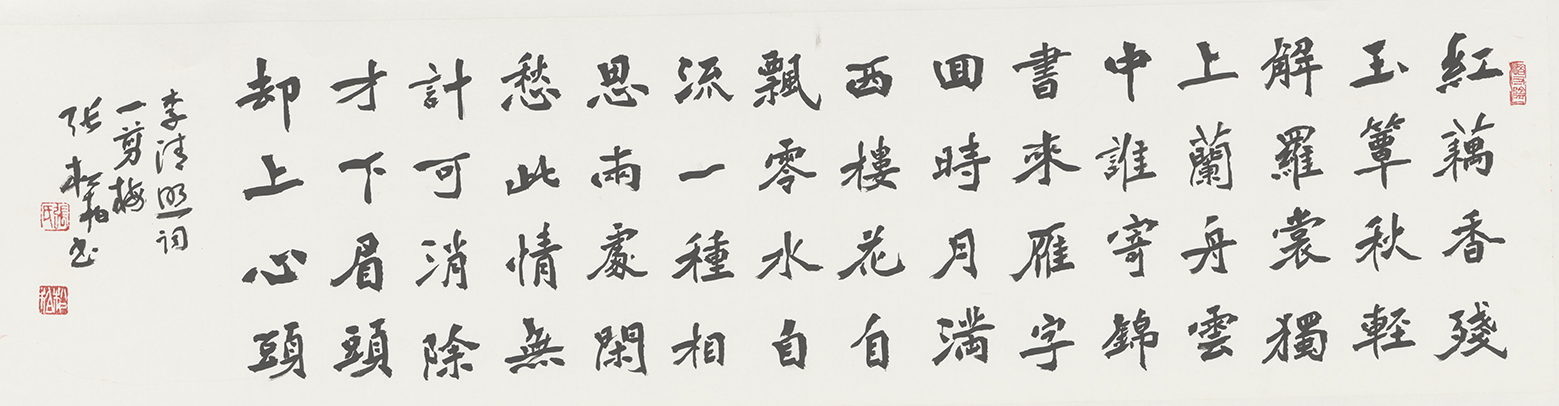 紅藕香殘
玉簟秋輕
解羅裳獨
上蘭舟雲
中誰寄錦
書來雁字
囬時月滿
西樓花自
飄零水自
流一種相
思兩處閑
愁此情無
計可消除
才下眉頭
却上心頭
李清照词
一剪梅
张松柏书
張氏
松柏